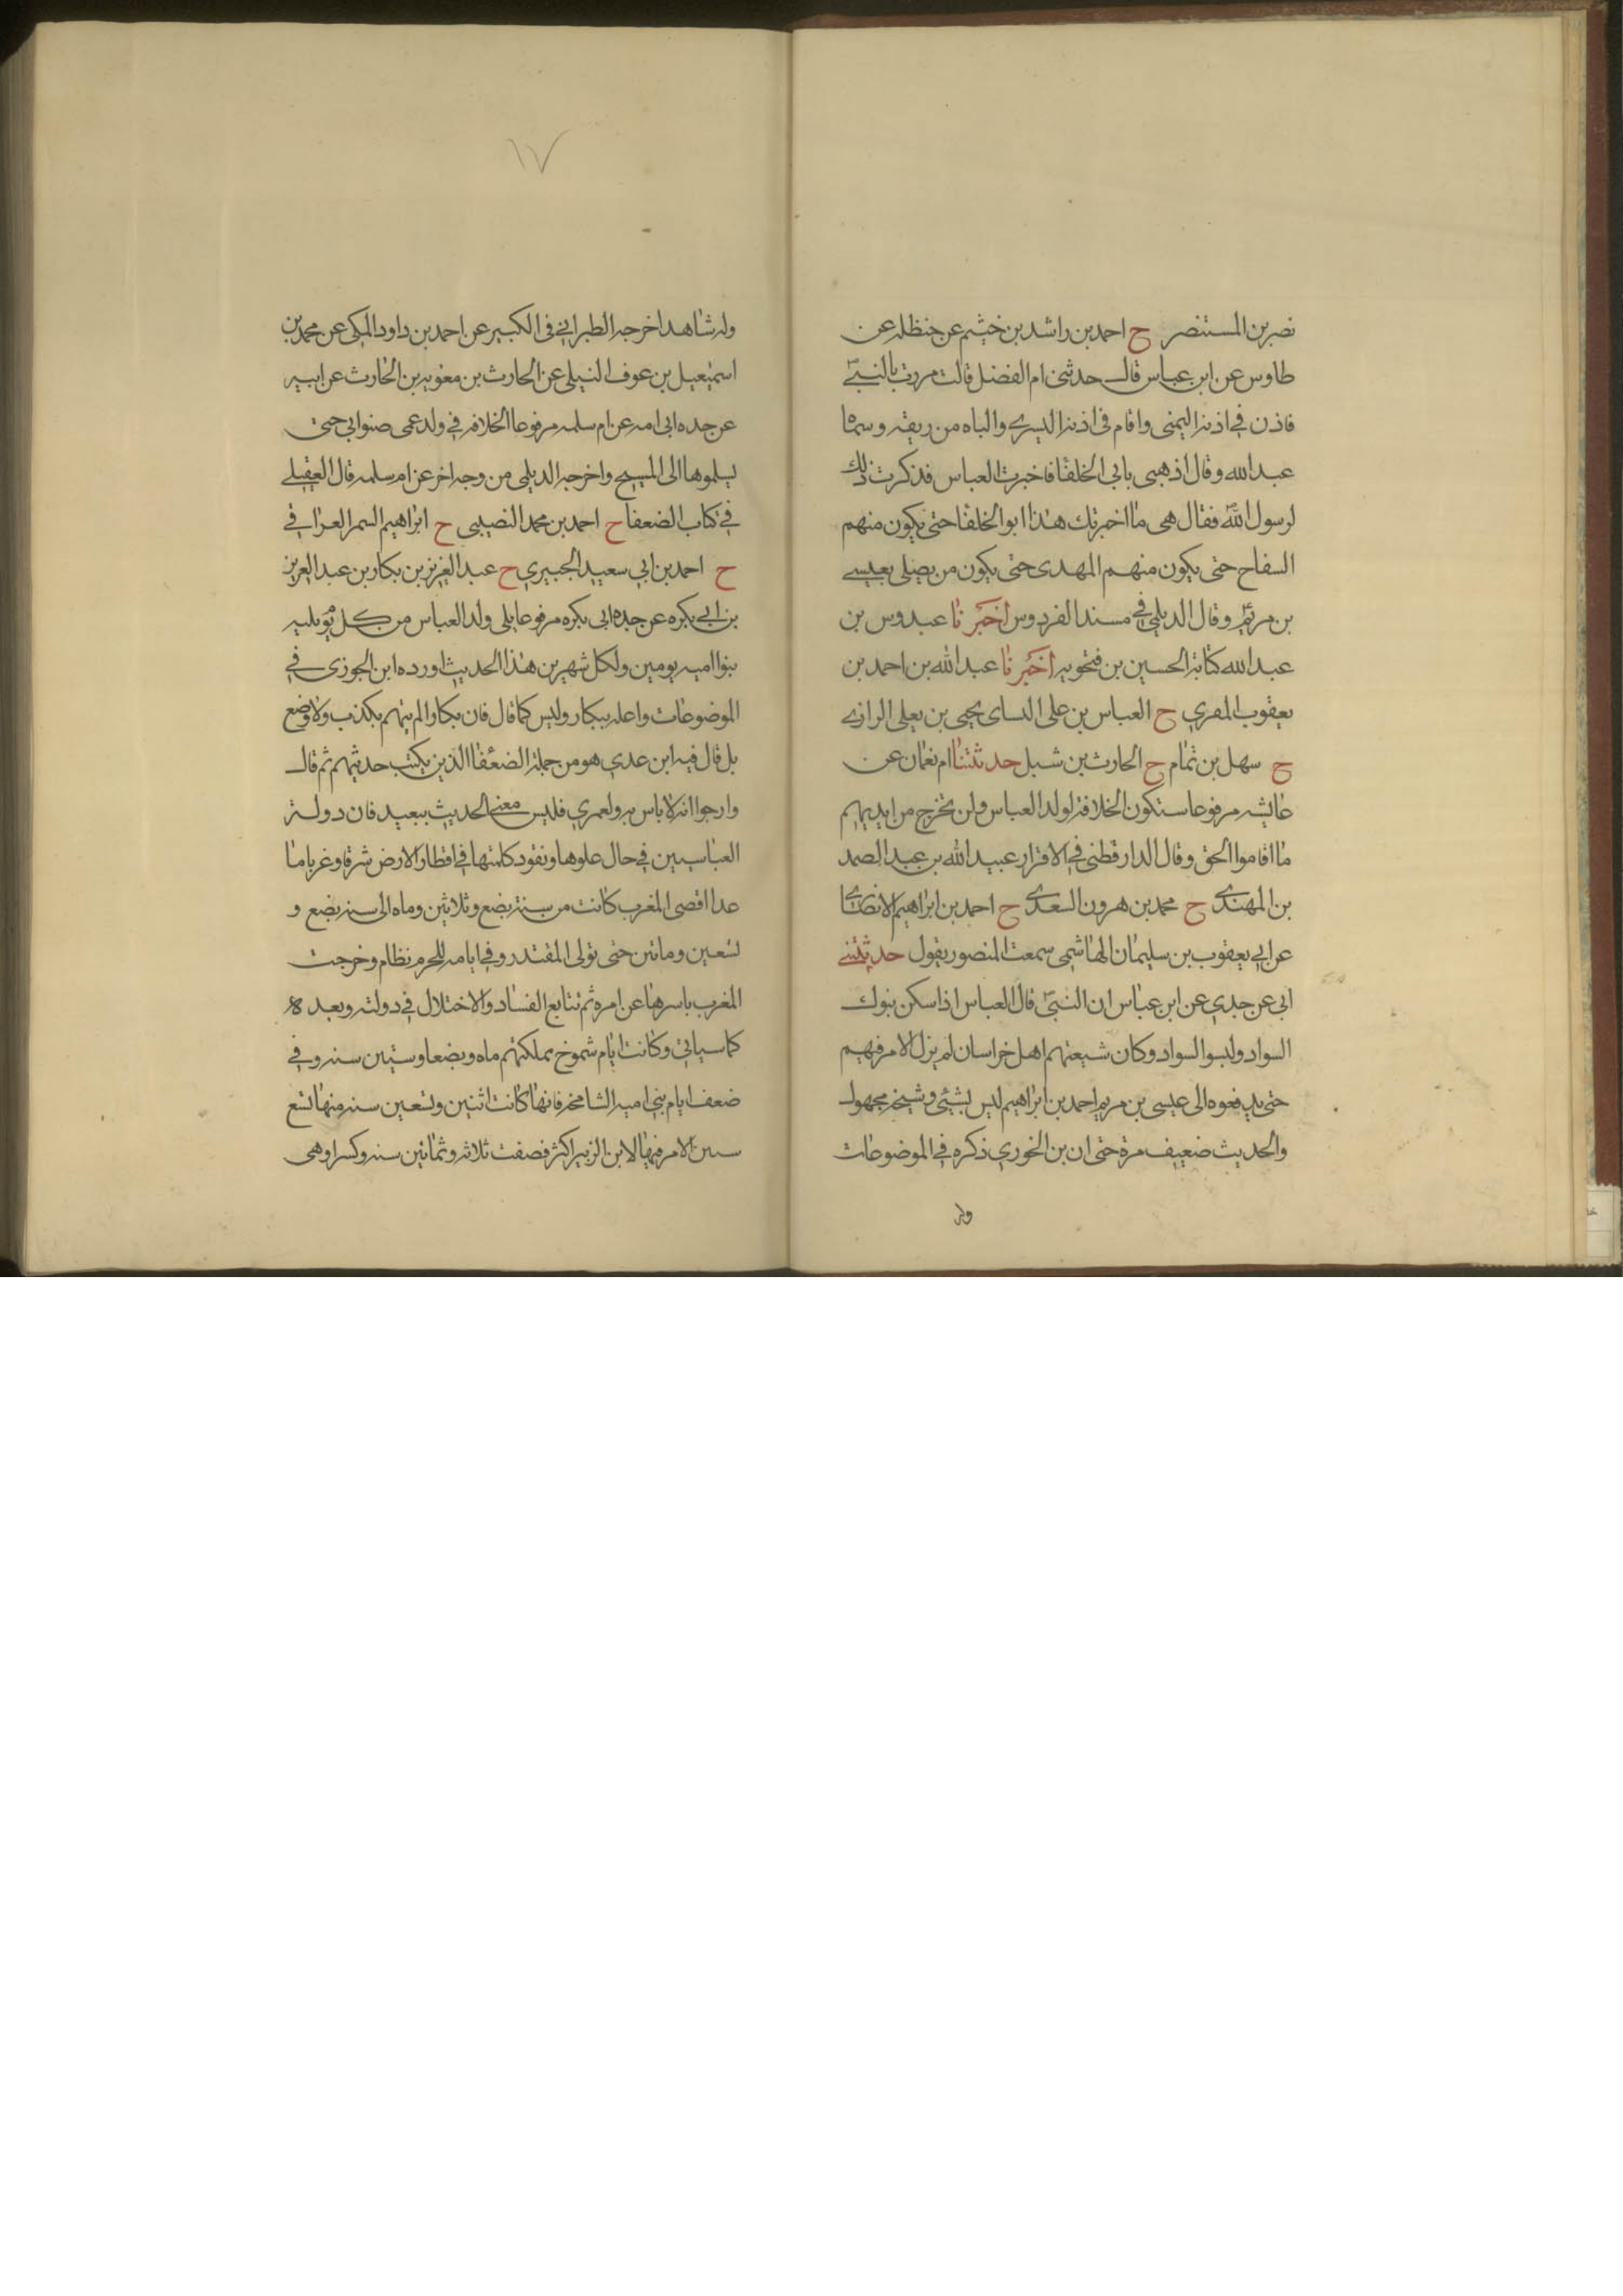 نصر بن المستنصر ح احمد بن راشد بن خثيم عن حنظله عن
طاوس عن ابن عباس قال حدثنى ام الفضل قالت مررت بالنبي
فاذن في اذنه اليمنى واقام فى اذنه اليسرى والباه من ريقه وسماه
عبد الله وقال اذهبى بابي الخلفا فاخبرت العباس فذكرت ذلك
لرسول الله فقال هى ما اخبرتك هذا ابو الخلفا حتى يكون منهم
السفاح حتى يكون منهم المهدى حتى يكون من يصلى بعيسى
بن مريم وقال الديلمي في مسند الفردوس اخبرنا عبدوس بن
عبد الله كتابة الحسين بن فتحويه اخبرنا عبد الله بن احمد بن
يعقوب المقري ح العباس بن على النساى يحيى بن يعلى الرازي
ح سهل بن تمام ح الحارث بن شبل حدثتنا ام نعمان عن
عايشه مرفوعا ستكون الخلافة لولد العباس ولن تخرج من ايديهم
ما اقاموا الحق وقال الدارقطنى في الافراد عبيد الله بن عبد الصمد
بن المهتدى ح محمد بن هرون السعدى ح احمد بن ابراهيم الانصارى
عن ابي يعقوب بن سليمان الهاشمى سمعت المنصور يقول حدثتنى
ابى عن جدي عن ابن عباس ان النبي قال للعباس اذا سكن بنوك
السواد ولبسوا السواد وكان شيعتهم اهل خراسان لم يزل الامر فيهم
حتى يدفعوه الى عيسى بن مريم احمد بن ابراهيم ليس بشئى وشيخه مجهول
والحديث ضعيف مرة حتى ان بن الخوري ذكره في الموضوعات
وله
١٧
وله شاهد اخرجه الطبرانى فى الكبير عن احمد بن داود المكى عن محمد بن
اسمعيل بن عوف النيلى عن الحارث بن معويه بن الحارث عن ابيه
عن جده ابى امه عن ام سلمه مرفوعا الخلافه في ولد عمى صنو ابى حتى
يسلموها الى المسيح واخرجه الديلمى من وجه اخر عن ام سلمه قال العقيلى
في كتاب الضعفا ح احمد بن محمد النصيبى ح ابراهيم السمر العرافي
ح احمد بن ابي سعيد الجبيري ح عبد العزيز بن بكار بن عبد العزيز
بن ابى بكره عن جده ابى بكره مرفوعا يلى ولد العباس من كل يوم يليه
بنوا اميه يومين ولكل شهرين هذا الحديث اورده ابن الجوزى في
الموضوعات واعله ببكار وليس كما قال فان بكارا لم يتهم بكذب ولا وضع
بل قال فيه ابن عدي هو من جملة الضعفا الذين يكتب حديثهم ثم قال
وارجوا انه لا باس به ولعمري فليس معنى الحديث ببعيد فان دولة
العباسيين في حال علوها ونفود كلمتها في اقطار الارض شرقا وغربا ما
عدا اقصى المغرب كانت من سنة بضع وثلاثين وماه الى سنه بضع و
تسعين ومائتين حتى تولى المقتدر وفي ايامه للحرم نظام وخرجت
المغرب باسرها عن امره ثم تتابع الفساد والاختلال في دولته وبعده
كما سياتي وكانت ايام شموخ مملكتهم ماه وبضعا وستين سنه وفي
ضعف ايام بنى اميه الشامخه فانها كانت اثنين وتسعين سنه منها تسع
سنين الامر فيها لابن الزبير اكثر فصفت ثلاثه وثمانين سنه وكسرا وهى